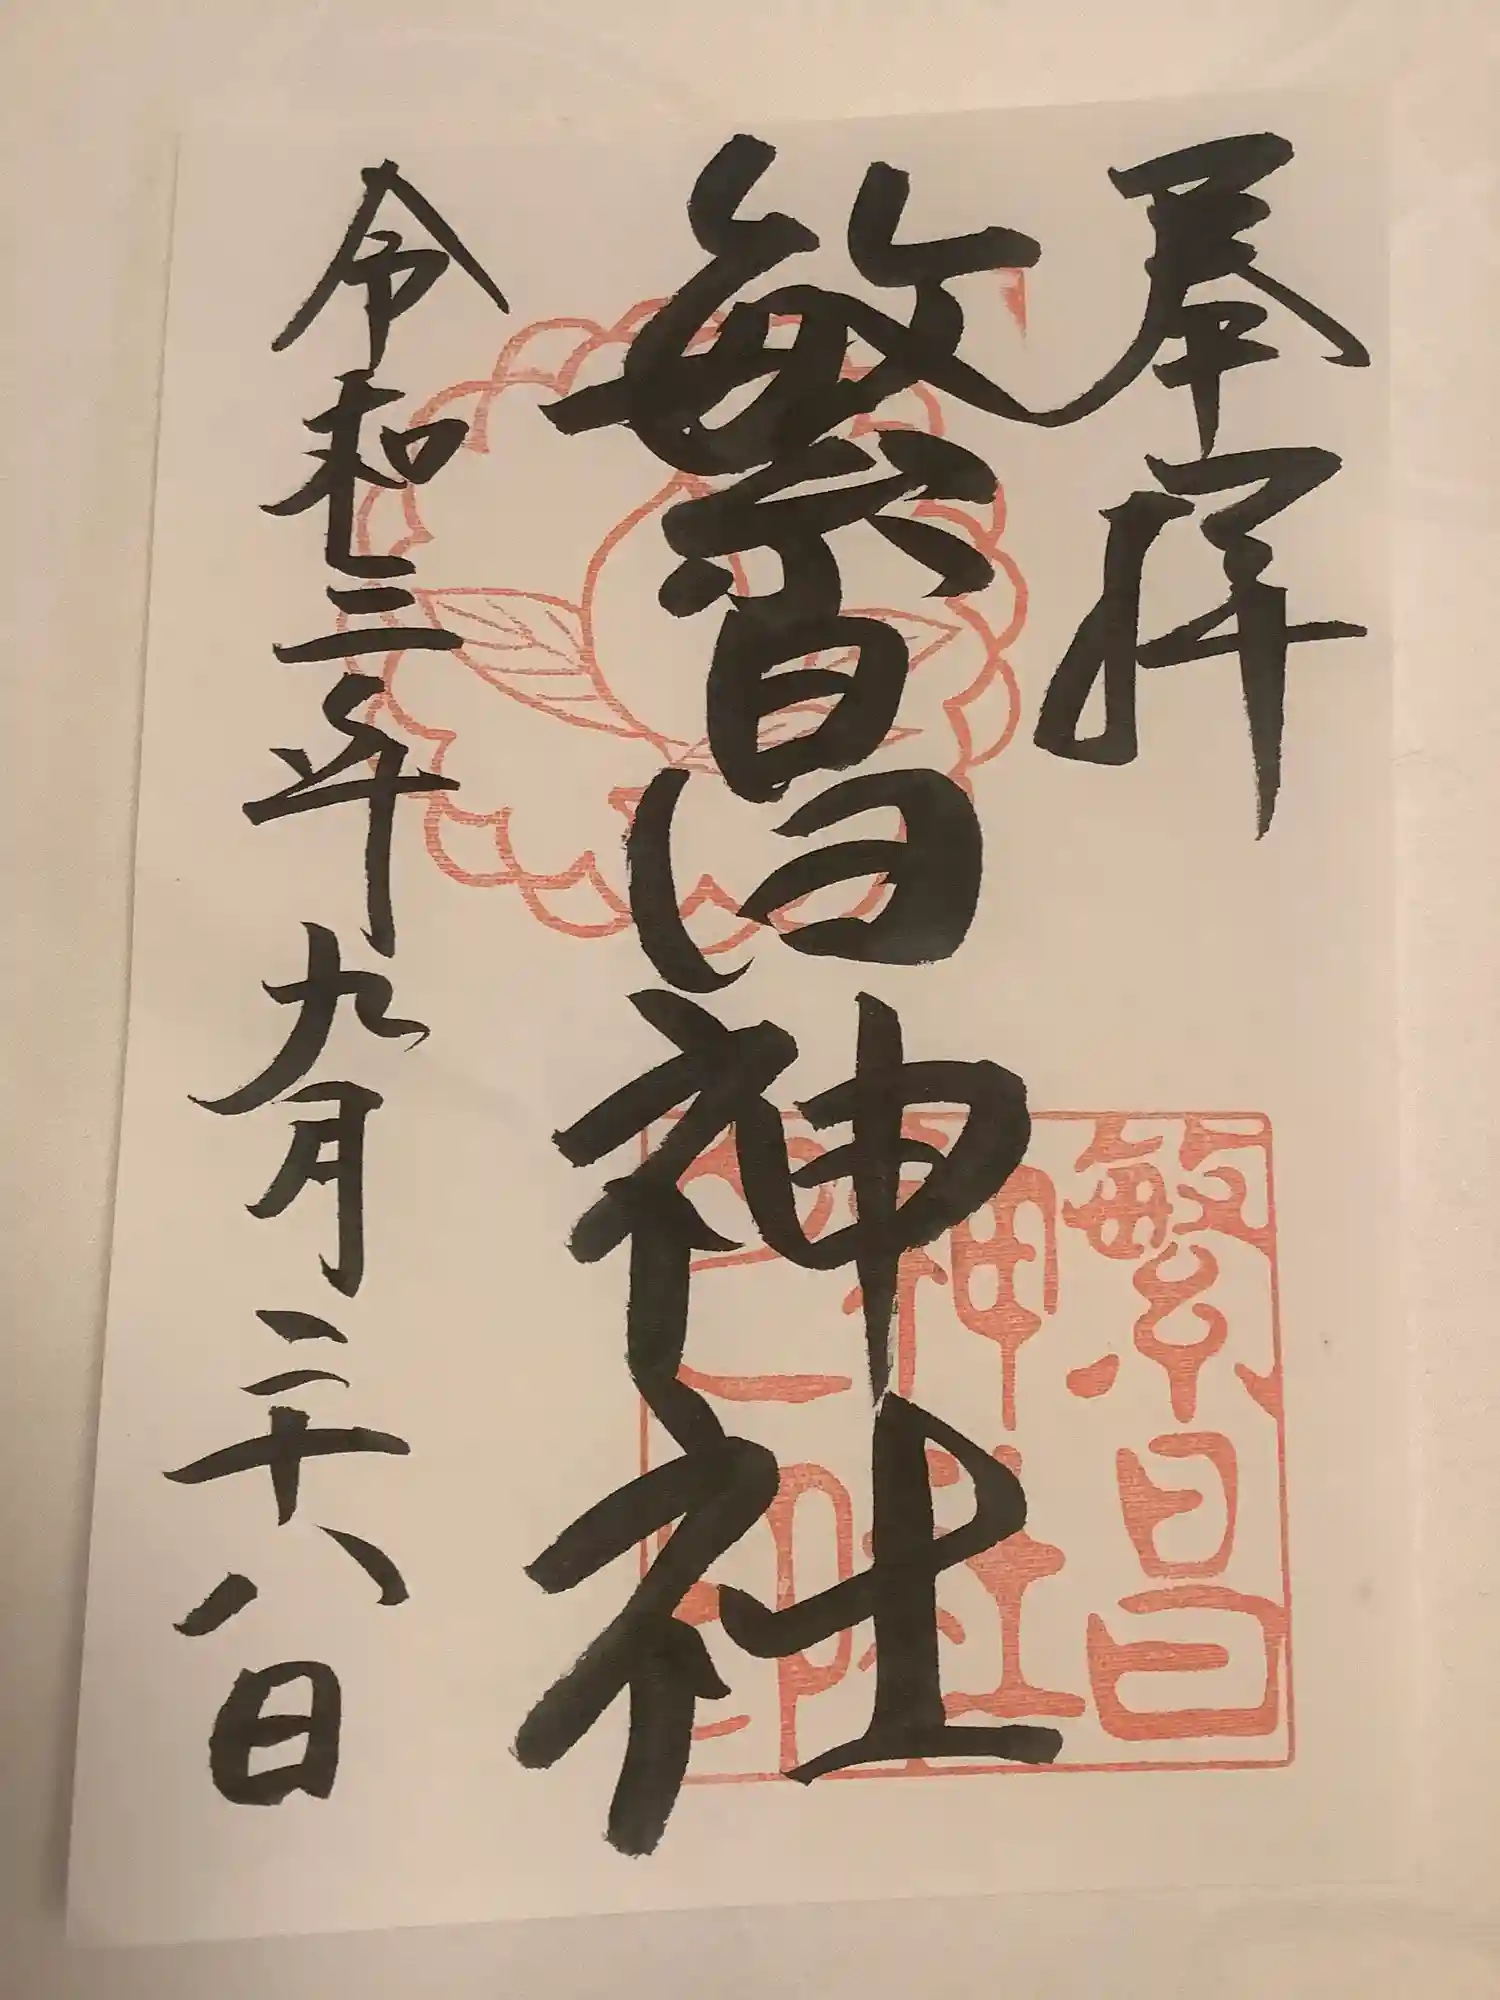 奉拝
繁昌神社
令和二年九月二十八日
繁昌
神社
之印